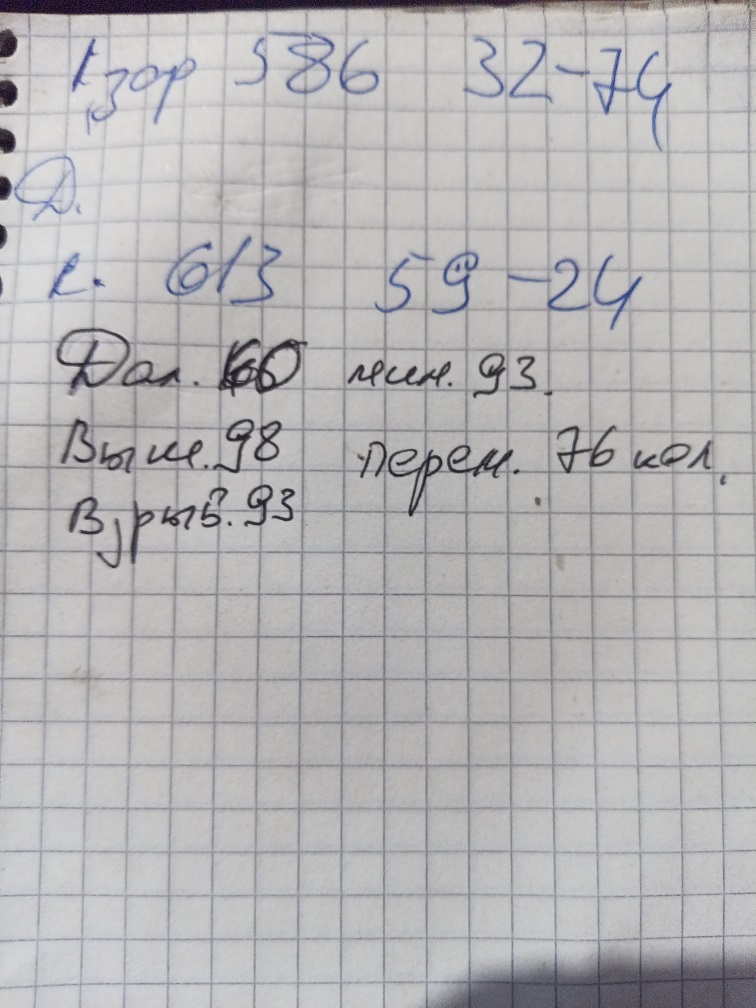 1 зар 586 32-74
Д.
г. 613 59-24
Дал. 60 мин. 93.
Выш. 98 перем. 76 кол.
Взрыв. 93